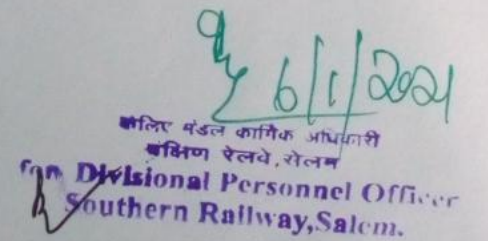 6/1/2021
कृलिए मंडल कार्मिक अधिकारी
दक्षिण रेलवे, सेलम
for Divisional Personnel Officer
Southern Railway,Salem.